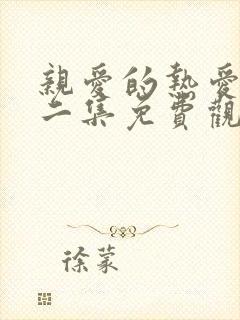 親愛的熱愛
二集免費觀
徐蒙